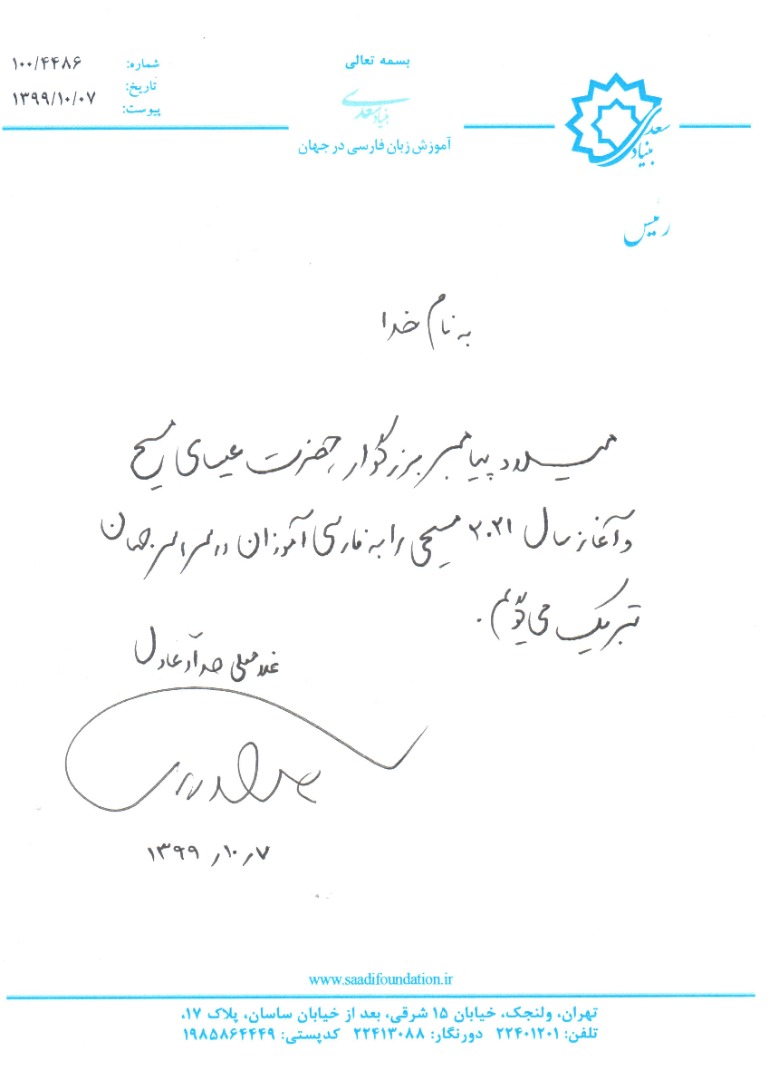 بسمه تعالی
بنیاد سعدی
آموزش زبان فارسی در جهان
شماره: ۱۰۰/۴۴۸۶
تاریخ: ۱۳۹۹/۱۰/۰۷
پیوست:
بنیاد سعدی
رئیس
به نام خدا
میلاد پیامبر بزرگوار، حضرت عیسای مسیح
و آغاز سال ۲۰۲۱ مسیحی را به فارسی آموزان در سراسر جهان
تبریک می‌گویم.
غلامعلی حداد عادل
۱۳۹۹٫۱۰٫۷
www.saadifoundation.ir
تهران، ولنجک، خیابان ۱۵ شرقی، بعد از خیابان ساسان، پلاک ۱۷،
تلفن: ۲۲۴۰۱۲۰۱ دورنگار: ۲۲۴۱۳۰۸۸ کدپستی: ۱۹۸۵۸۶۴۴۴۹